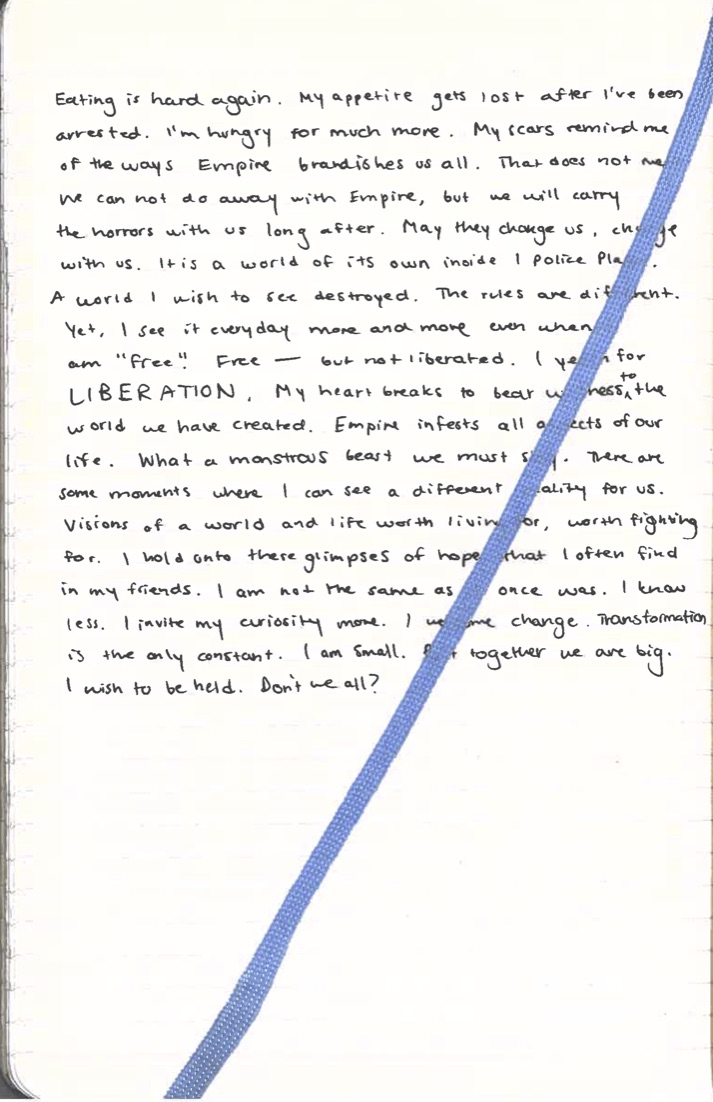 Eating is hard again. My appetite gets lost after I've been
arrested. I'm hungry for much more. My scars remind me
of the ways Empire brandishes us all. That does not
we can not do away with Empire, but we will carry
the horrors with us long after. May they change us, change
with us. It is a world of its own inside 1 Police
A world I wish to see destroyed. The rules are different.
Yet, I see it everyday more and more even when
am "free". Free — but not liberated. I yearn for
LIBERATION. My heart breaks to bear witness to the
world we have created. Empire infests all aspects of our
life. What a monstrous beast we must There are
some moments where I can see a different reality for us.
Visions of a world and life worth living for, worth fighting
for. I hold onto these glimpses of hope that I often find
in my friends. I am not the same as once was. I know
less. I invite my curiosity more. I welcome change. Transformation
is the only constant. I am small. But together we are big.
I wish to be held. Don't we all?